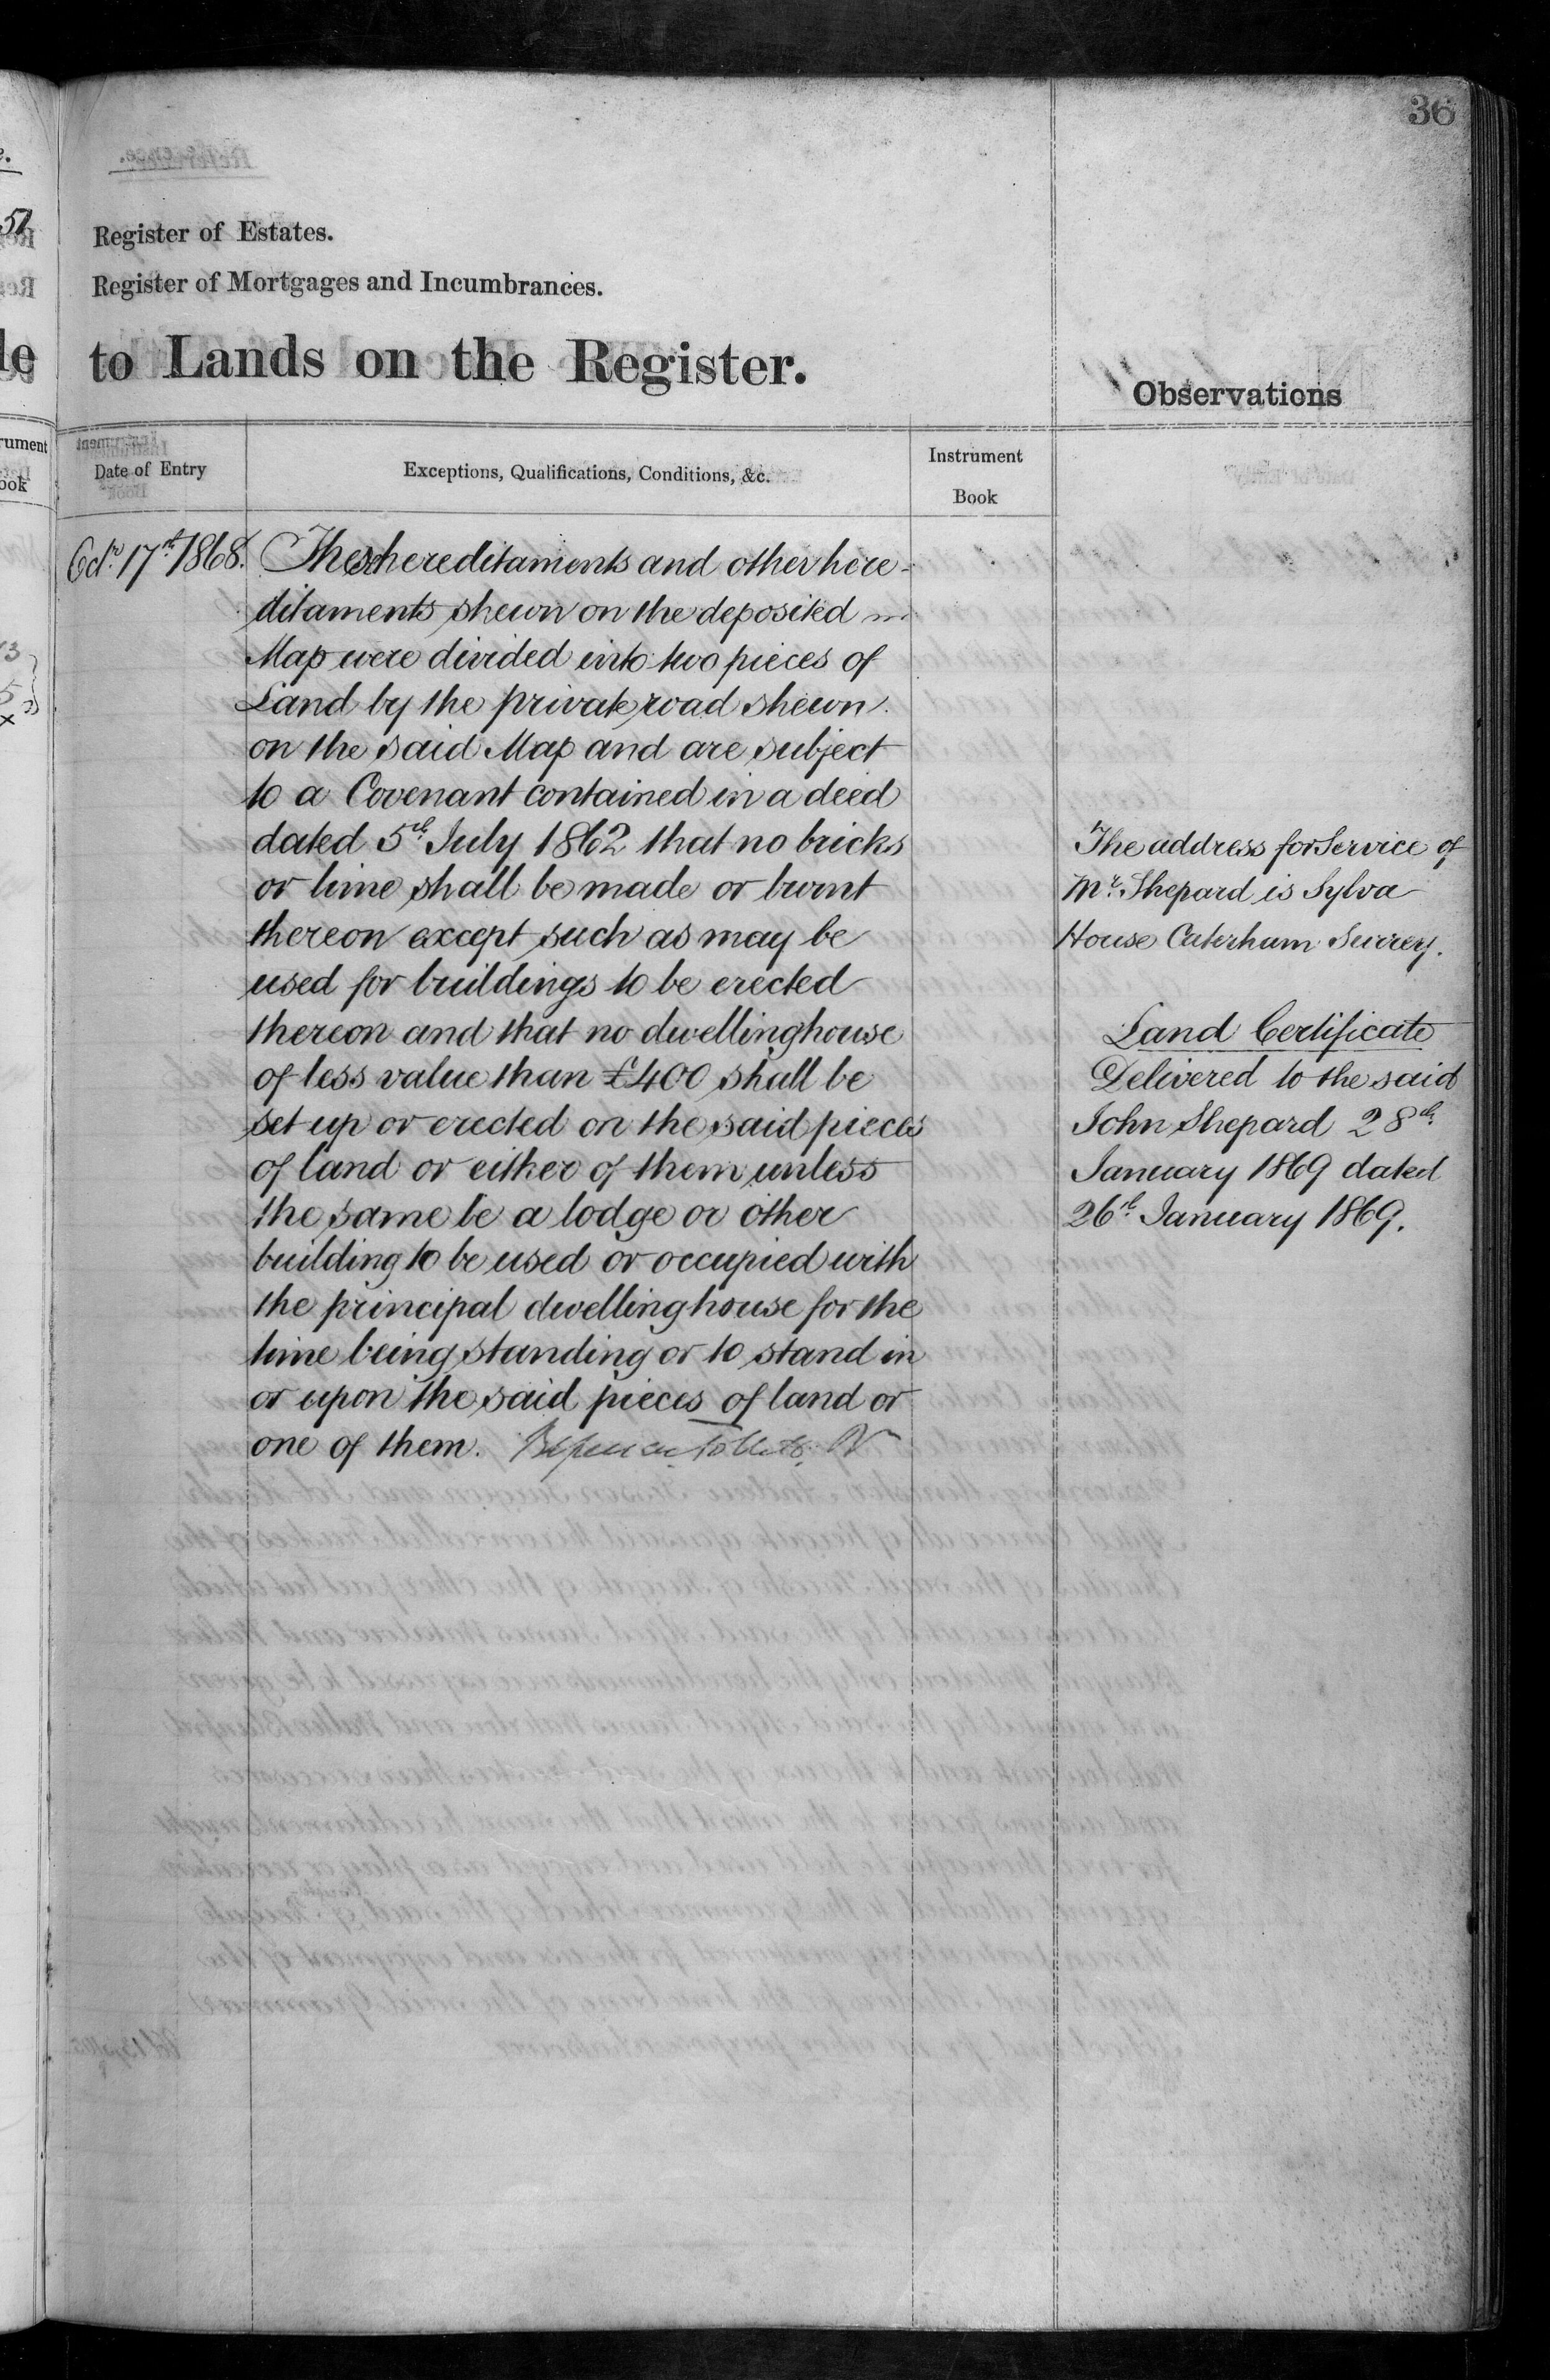 36
Register of Estates.
Register of Mortgages and Incumbrances.
to Lands on the Register.
Observations
Date of Entry
Exceptions, Qualifications, Conditions, &c.
Instrument
Book
17th 1868. These hereditaments and other here-
ditaments shewn on the deposited
Map were divided into two pieces of
Land by the private road shewn
on the said Map and are subject
to a Covenant contained in a deed
dated 5th July 1862 that no bricks
or lime shall be made or burnt
thereon except such as may be
used for buildings to be erected
thereon and that no dwellinghouse
of less value than £400 shall be
set up or erected on the said pieces
of land or either of them unless
the same be a lodge or other
building to be used or occupied with
the principal dwellinghouse for the
time being standing or to stand in
or upon the said pieces of land or
one of them.
The address for Service of
Mr. Shepard is Sylva
House Caterham Surrey.
Land Certificate
Delivered to the said
John Shepard 28th
January 1869 dated
26th January 1869.